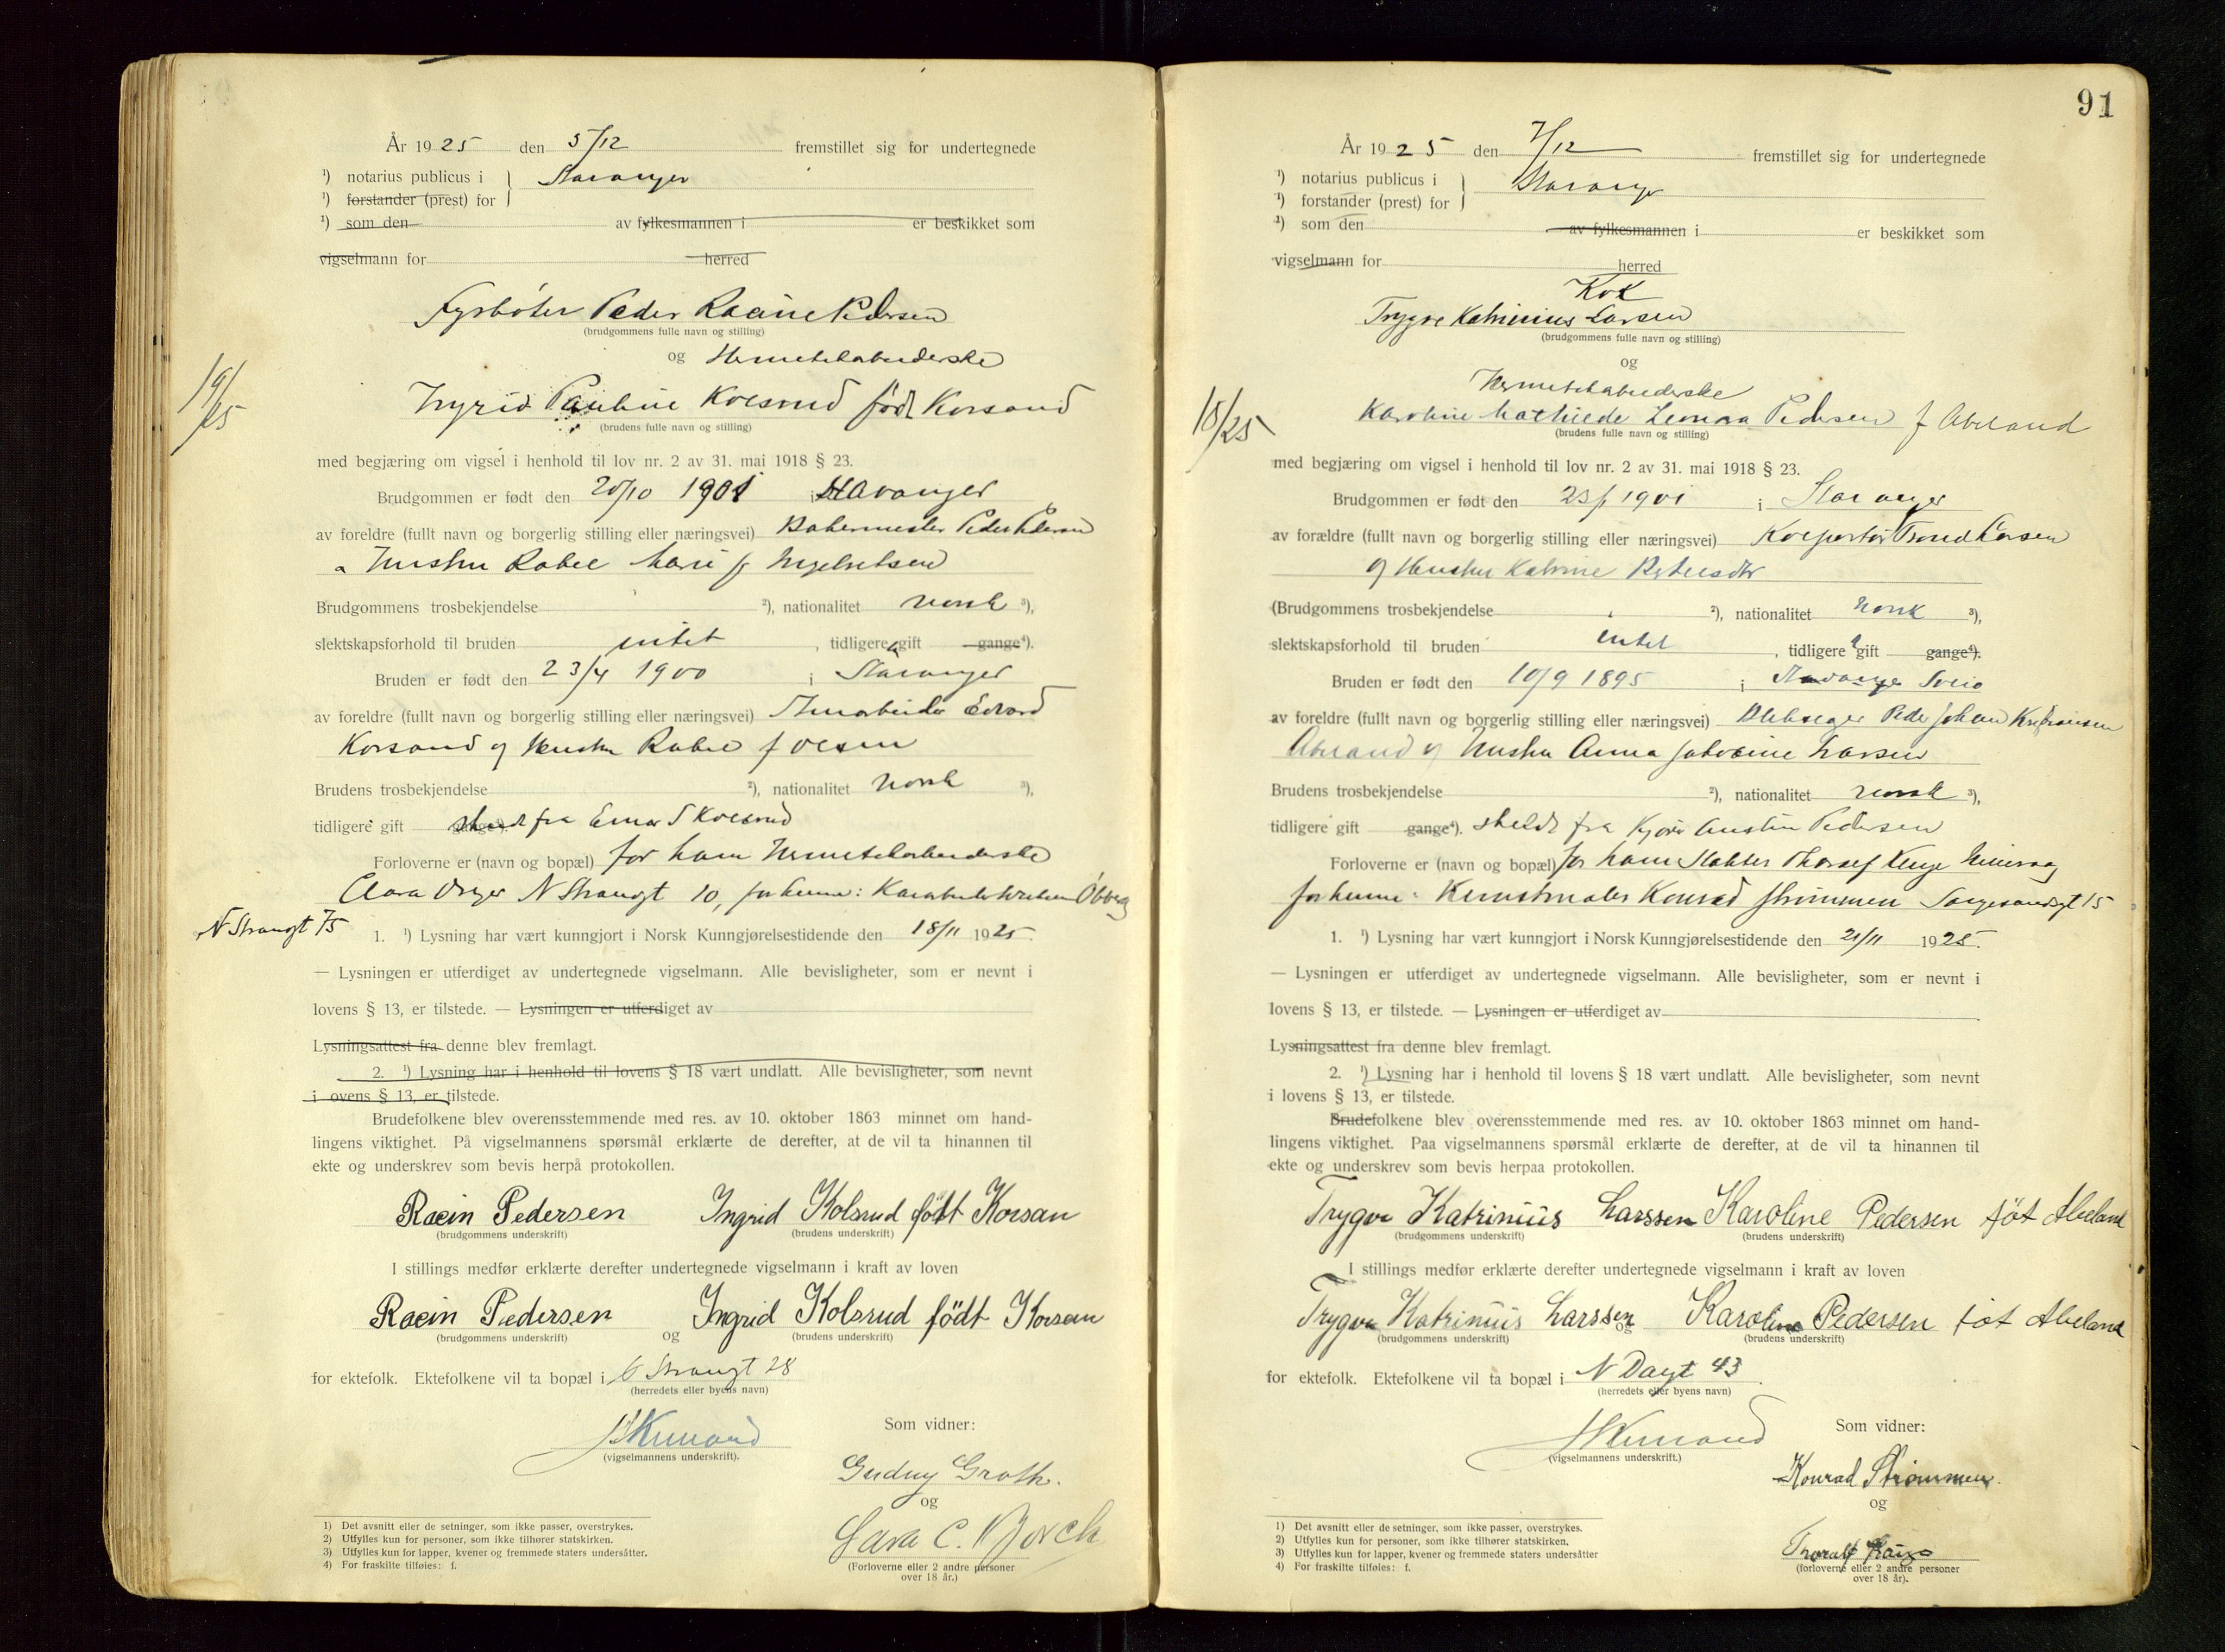 År 1925 den 5/12 fremstillet sig for undertegnede
¹) notarius publicus i } Stavanger
¹) forstander (prest) for
¹) som den av fylkesmannen i er beskikket som
vigselmann for herred
Fyrbøter Peder Racine Pedersen
(brudgommens fulle navn og stilling)
og Hermetikarbeiderske
19/25
Ingrid Pauline Kolsrud født Korsand
(brudens fulle navn og stilling)
med begjæring om vigsel i henhold til lov nr. 2 av 31. mai 1918 § 23.
Brudgommen er født den 20/10 1901 i Stavanger
av foreldre (fullt navn og borgerlig stilling eller næringsvei) Bakermester Peder Pedersen
Hustru Rakel Marie f
Brudgommens trosbekjendelse ²), nationalitet norsk ³),
slektskapsforhold til bruden intet , tidligere gift gange⁴).
Bruden er født den 23/4 1900 i Stavanger
av foreldre (fullt navn og borgerlig stilling eller næringsvei) Edvard
Korsand og Hustru Rakel f Olsen
Brudens trosbekjendelse ²), nationalitet norsk ³),
tidligere gift gange⁴). skilt fra Einar Kolsrud
Forloverne er (navn og bopæl) for ham Hermetikarbeiderske
Clara N Strandgt 10, for henne:
N Strandgt 75
1. ¹) Lysning har vært kunngjort i Norsk Kunngjørelsestidende den 18/11 1925.
— Lysningen er utferdiget av undertegnede vigselmann. Alle bevisligheter, som er nevnt i
lovens § 13, er tilstede. — Lysningen er utferdiget av
Lysningsattest fra denne blev fremlagt.
2. ¹) Lysning har i henhold til lovens § 18 vært undlatt. Alle bevisligheter, som nevnt
i ovens § 13, er tilstede.
Brudefolkene blev overensstemmende med res. av 10. oktober 1863 minnet om hand-
lingens viktighet. På vigselmannens spørsmål erklærte de derefter, at de vil ta hinannen til
ekte og underskrev som bevis herpå protokollen.
Racin Pedersen Ingrid Kolsrud født Korsan
(brudgommens underskrift) (brudens underskrift)
I stillings medfør erklærte derefter undertegnede vigselmann i kraft av loven
Racin Pedersen Ingrid Kolsrud født Korsan
(brudgommens underskrift) og (brudens underskrift)
for ektefolk. Ektefolkene vil ta bopæl i Strandgt 28
(herredets eller byens navn)
(vigselmannens underskrift).
Som vidner:
Gudny Groth.
og
Sara C. Borch
(Forloverne eller 2 andre personer
over 18 år.)
1) Det avsnitt eller de setninger, som ikke passer, overstrykes.
2) Utfylles kun for personer, som ikke tilhører statskirken.
3) Utfylles kun for lapper, kvener og fremmede staters undersåtter.
4) For fraskilte tilføies: f.
91
År 1925 den 7/12 fremstillet sig for undertegnede
¹) notarius publicus i } Stavanger
¹) forstander (prest) for
¹) som den av fylkesmannen i er beskikket som
vigselmann for herred
Kok
Trygve Katrinius Larsen
(brudgommens fulle navn og stilling)
og
Hermetikarbeiderske
18/25
Karoline Mathilde Leonora Pedersen f Abeland
(brudens fulle navn og stilling)
med begjæring om vigsel i henhold til lov nr. 2 av 31. mai 1918 § 23.
Brudgommen er født den 23/1 1901 i Stavanger
av forældre (fullt navn og borgerlig stilling eller næringsvei) Kolportør Trond Larsen
og Hustru Katrine
(Brudgommens trosbekjendelse ²), nationalitet norsk ³),
slektskapsforhold til bruden intet , tidligere gift gange⁴).
Bruden er født den 10/9 1895 i Stavanger Sveio
av foreldre (fullt navn og borgerlig stilling eller næringsvei) Peder Johan Kristiansen
Abeland og Hustru Anna Larsen
Brudens trosbekjendelse ²), nationalitet norsk ³),
tidligere gift gange⁴). skilt fra Austin Pedersen
Forloverne er (navn og bopæl) for ham
for henne: Kunstmaler Konrad Strømmen 15
1. ¹) Lysning har vært kunngjort i Norsk Kunngjørelsestidende den 21/11 1925.
— Lysningen er utferdiget av undertegnede vigselmann. Alle bevisligheter, som er nevnt i
lovens § 13, er tilstede. — Lysningen er utferdiget av
Lysningsattest fra denne blev fremlagt.
2. ¹) Lysning har i henhold til lovens § 18 vært undlatt. Alle bevisligheter, som nevnt
i lovens § 13, er tilstede.
Brudefolkene blev overensstemmende med res. av 10. oktober 1863 minnet om hand-
lingens viktighet. Paa vigselmannens spørsmål erklærte de derefter, at de vil ta hinannen til
ekte og underskrev som bevis herpaa protokollen.
Trygve Katrinius Larssen Karoline Pedersen føt Abeland
(brudgommens underskrift) (brudens underskrift)
I stillings medfør erklærte derefter undertegnede vigselmann i kraft av loven
Trygve Katrinius Larssen Karoline Pedersen føt Abeland
(brudgommens underskrift) og (brudens underskrift)
for ektefolk. Ektefolkene vil ta bopæl i N Dagt 43
(herredets eller byens navn)
(vigselmannens underskrift.)
Som vidner:
Konrad Strømmen.
og
Thoralf
(forloverne eller 2 andre personer
over 18 år).
1) Det avsnitt eller de setninger, som ikke passer, overstrykes.
2) Utfylles kun for personer, som ikke tilhører statskirken.
3) Utfylles kun for lapper, kvener og fremmede staters undersåtter
4) For fraskilte tilføies: f.